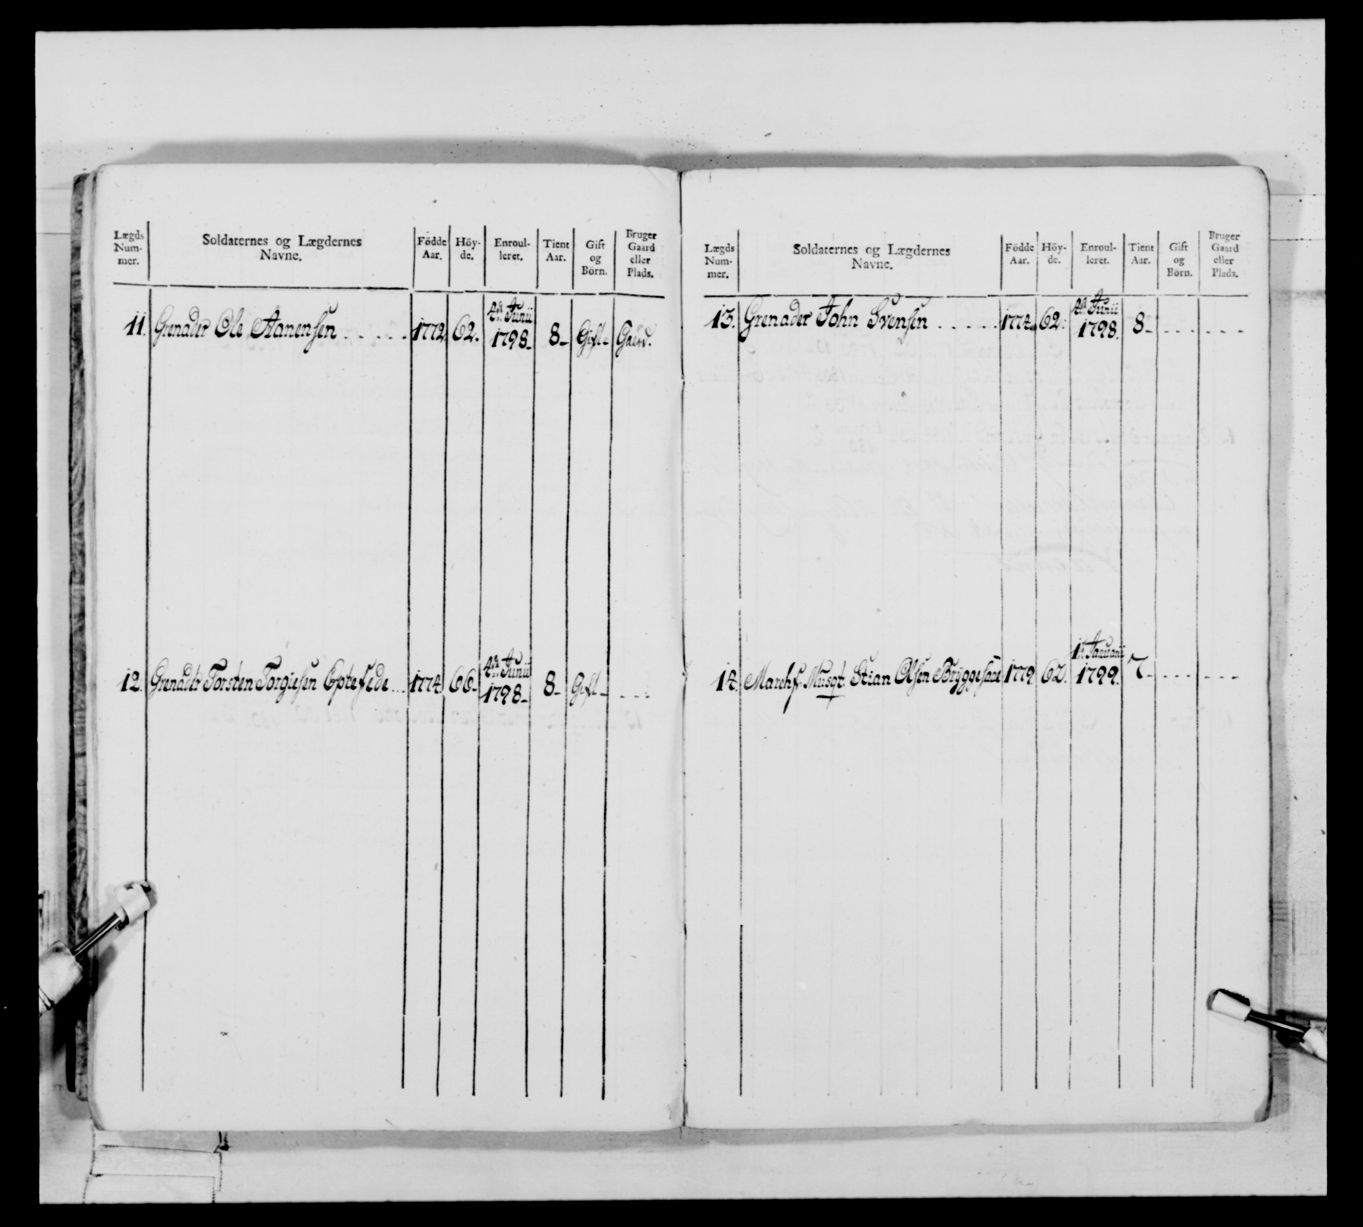 Lægds Num- mer. | Soldaternes og Lægdernes Navne. | Födde Aar. | Höy- de. | Enroul- leret. | Tient Aar. | Gift og Börn. | Bruger Gaard eller Plads.
11. Grenadeer Ole Aanensen . . . . . 1772. 62. 4de Junii 1798. 8 Gift Gaard.
12. Grenadeer Torsten Torgiesen 1774. 66. 4de Junii 1798. 8 Gift . . .
Lægds Num- mer. | Soldaternes og Lægdernes Navne. | Födde Aar. | Höy- de. | Enroul- leret. | Tient Aar. | Gift og Börn. | Bruger Gaard eller Plads.
13. Grenadeer John Svensen . . . . . 62. 4de Junii 1798. 8 . . . . . . . .
14. Musqt Stian Olsen 1779 62. 1te Januarii 1799. 7 . . . . . . . .